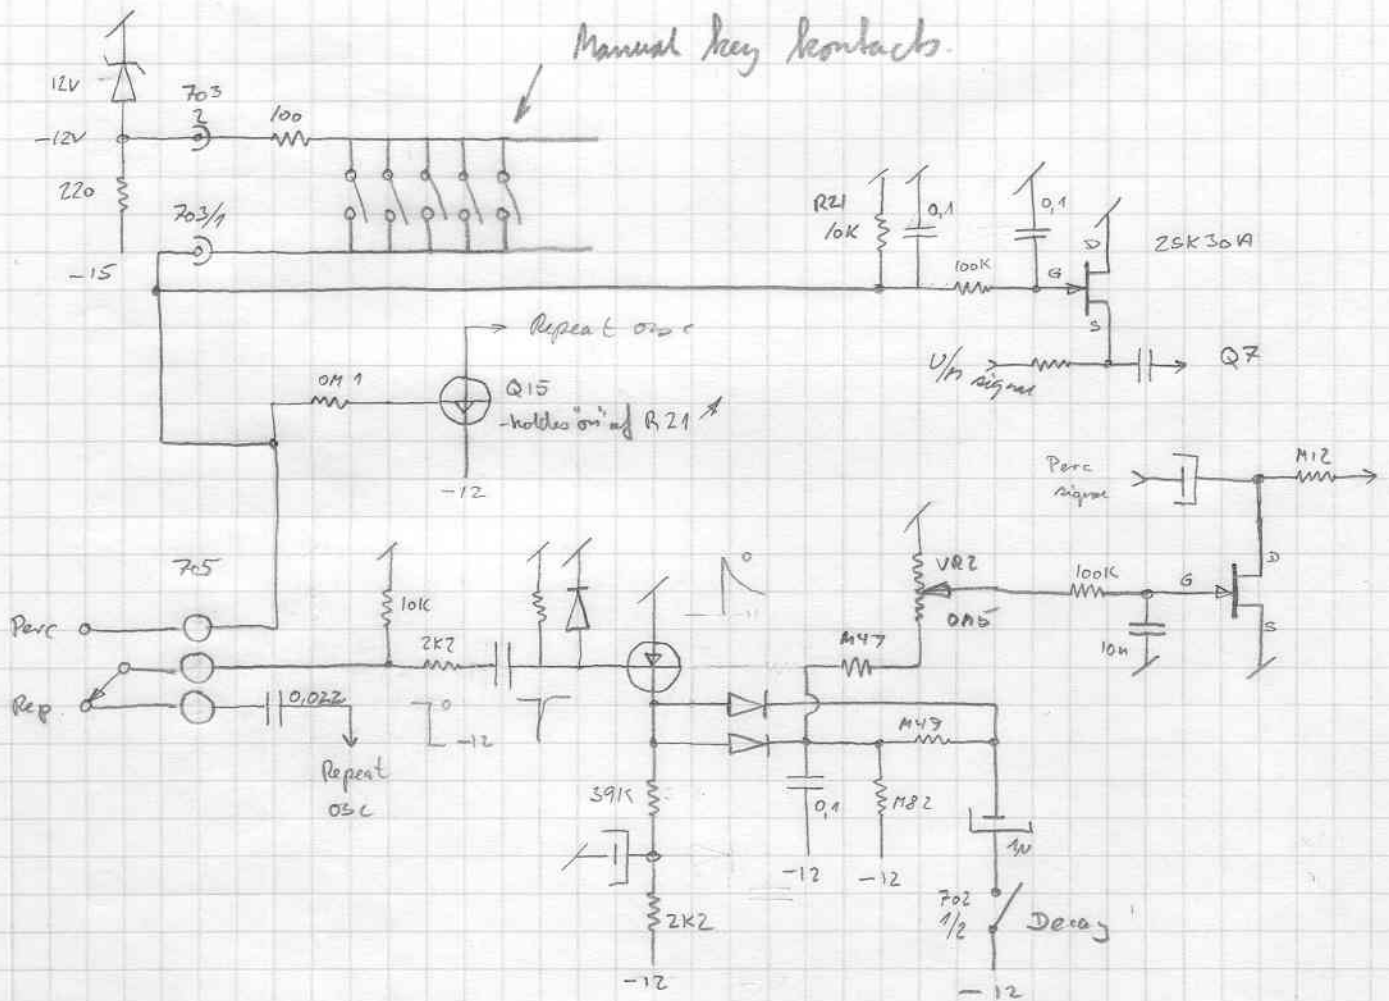 Manual key kontacts.
12V
703
2
100
-12V
220
703/1
-15
R21
10K
0,1
0,1
100K
D
G
S
2SK30A
U/n signal
Q7
Repeat osc
0M1
Q15
-holdes "on" af R21
-12
Perc
signal
M12
705
Perc
Rep
0,022
Repeat
osc
10K
2K2
0
-12
0
VR2
0M5
100K
G
D
S
10n
M47
M47
0,1
M82
39K
2K2
-12
-12
-12
702
1/2
Decay
-12